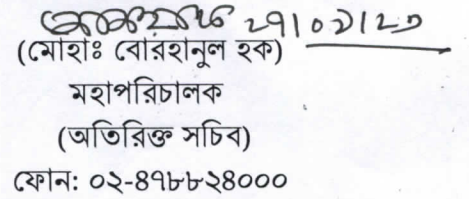 (মোহাঃ বোরহানুল হক)
মহাপরিচালক
(অতিরিক্ত সচিব)
ফোন: ০২-৪৭৮৮২৪০০০